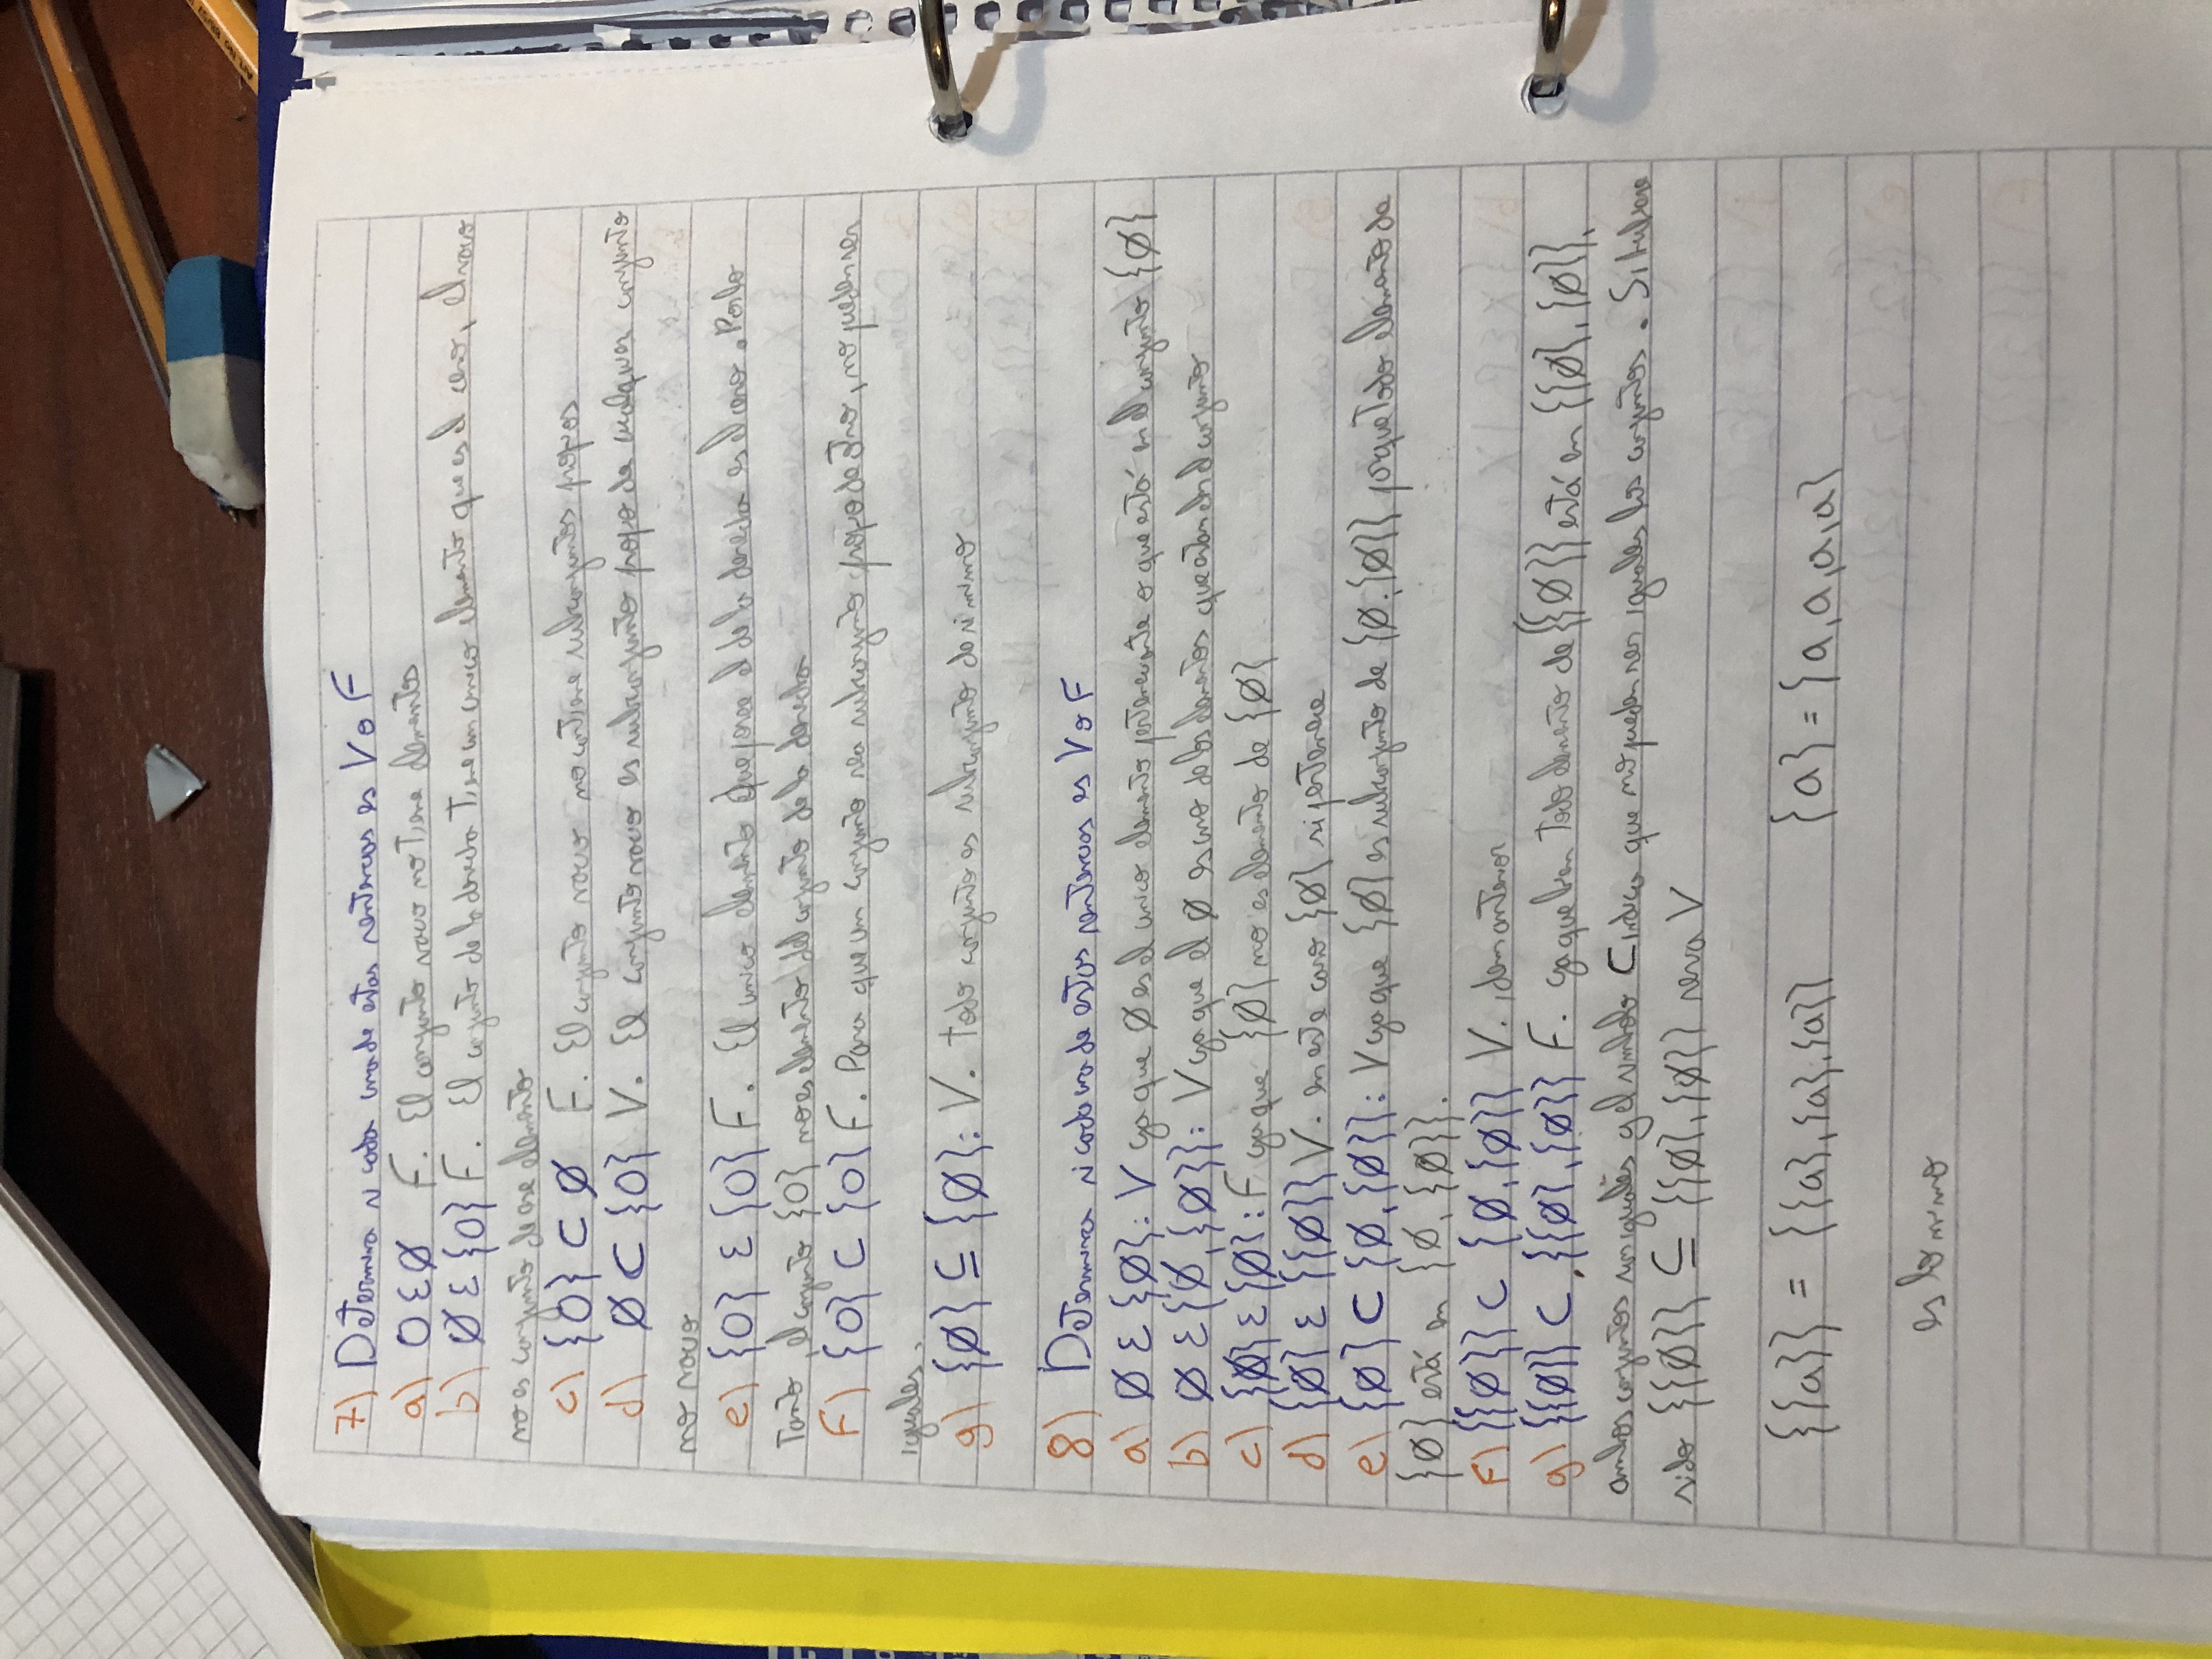 7) Determina si cada una de estas sentencias es V o F
a) 0 ε ∅ F. El conjunto vacio no tiene elementos
b) ∅ ε {0} F. El conjunto de la derecha tiene un unico elemento que es el cero, el vacio
no es conjunto de ese elemento
c) {0} ⊂ ∅ F. El conjunto vacio no contiene subconjuntos propios
d) ∅ ⊂ {0} V. El conjunto vacio es subconjunto propio de cualquier conjunto
no vacio
e) {0} ε {0} F. El unico elemento que posee el de la derecha es el cero. Por lo
tanto, el conjunto {0} no es elemento del conjunto de la derecha
F) {0} ⊂ {0} F. Para que un conjunto sea subconjunto propio de otro, no pueden ser
iguales.
g) {∅} ⊆ {∅}: V. todo conjunto es subconjunto de si mismo
8) Determina si cada una de estas sentencias es V o F
a) ∅ ε {∅}: V ya que ∅ es el unico elemento perteneciente o que está en el conjunto {∅}
b) ∅ ε {∅, {∅}}: V ya que el ∅ es uno de los elementos que están del conjunto
c) {∅} ε {∅}: F ya que {∅} no es elemento de {∅}
d) {∅} ε {{∅}} V. en este caso {∅} si pertenece
e) {∅} ⊂ {∅, {∅}}: V ya que {∅} es subconjunto de {∅, {∅}} porque todo elemento de
{∅} está en {∅, {∅}}.
F) {{∅}} ⊂ {∅, {∅}} V. idem anterior
g) {{∅}} ⊂ {{∅}, {∅}} F. ya que bien todo elemento de {{∅}} está en {{∅}, {∅}},
ambos conjuntos son iguales y el simbolo ⊂ indica que no pueden ser iguales los conjuntos. Si hubiese
sido {{∅}} ⊆ {{∅}, {∅}} seria V
{{a}} = {{a}, {a}, {a}} {a} = {a, a, a, a}
es lo mismo